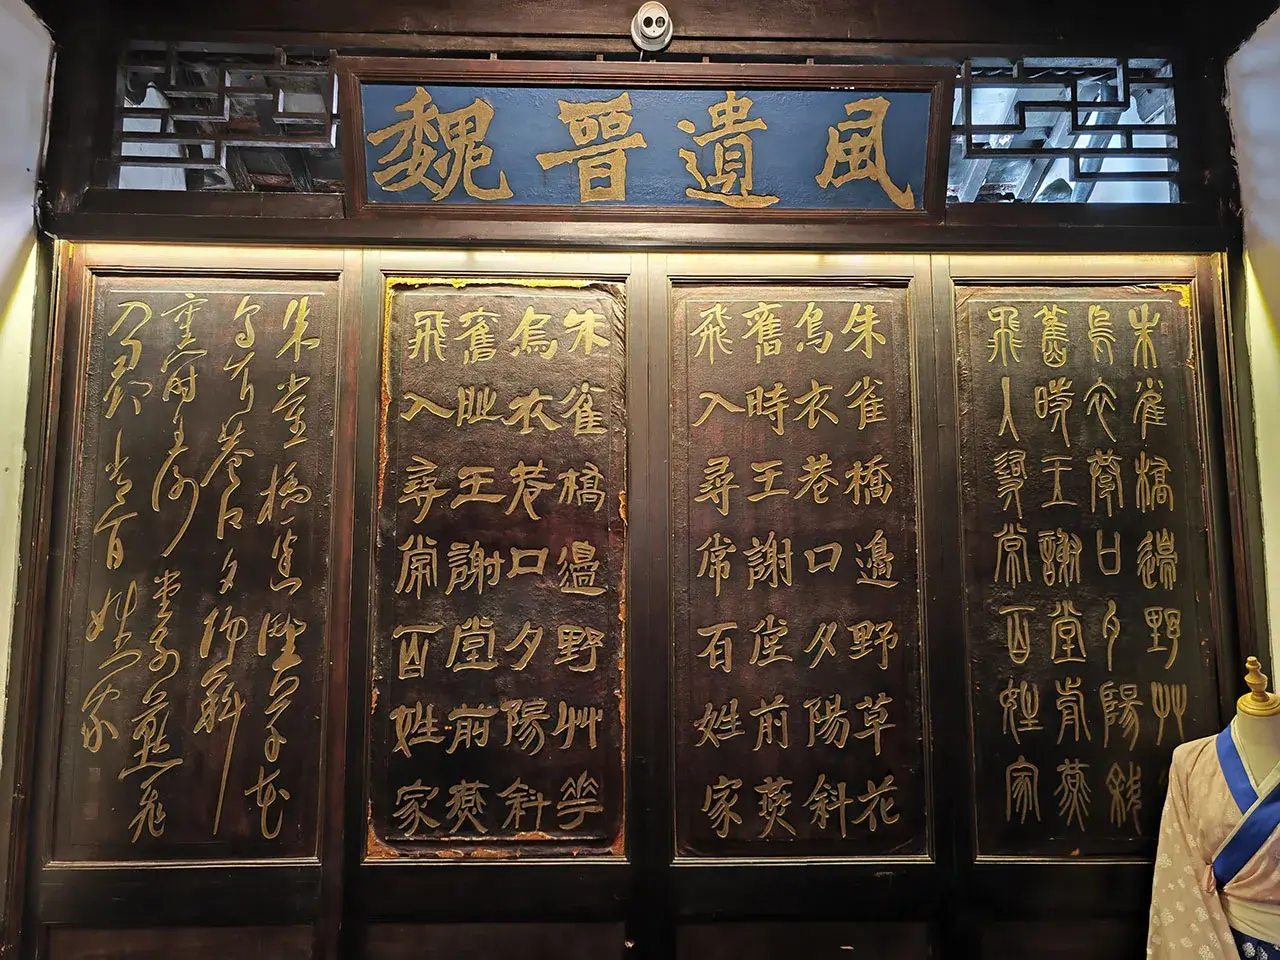 魏晉遺風
朱雀橋邊野艸
烏衣巷口夕陽斜
舊時王謝堂前燕
飛入尋常百姓家
朱雀橋邊野草花
烏衣巷口夕陽斜
舊時王謝堂前燕
飛入尋常百姓家
朱雀橋邊野艸華
烏衣巷口夕陽斜
舊時王謝堂前燕
飛入尋常百姓家
朱雀橋邊野草花
烏衣巷口夕陽斜
舊時王謝堂前燕飛
入尋常百姓家